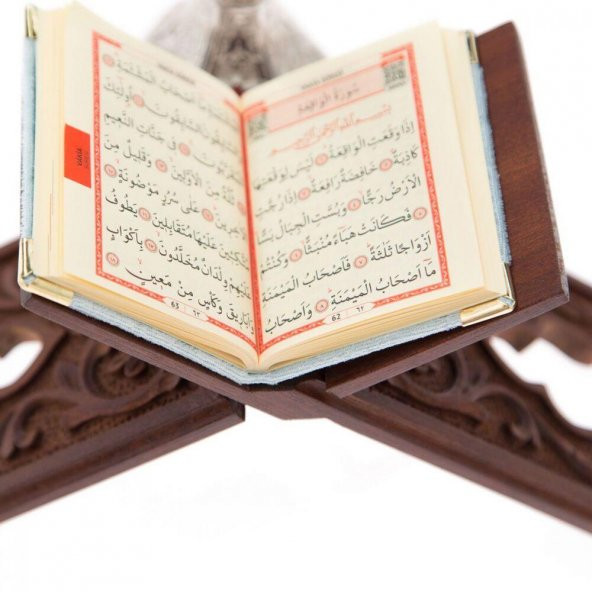 سُورَةُ الْوَاقِعَةِ
بِسْمِ اللّٰهِ الرَّحْمٰنِ الرَّحِيمِ
اِذَا وَقَعَتِ الْوَاقِعَةُ ۝١ لَيْسَ لِوَقْعَتِهَا
كَاذِبَةٌ ۝٢ خَافِضَةٌ رَافِعَةٌ ۝٣ اِذَا رُجَّتِ
الْاَرْضُ رَجًّا ۝٤ وَبُسَّتِ الْجِبَالُ بَسًّا ۝٥
فَكَانَتْ هَبَٓاءً مُنْبَثًّا ۝٦ وَكُنْتُمْ
اَزْوَاجًا ثَلٰثَةً ۝٧ فَاَصْحَابُ الْمَيْمَنَةِ
مَٓا اَصْحَابُ الْمَيْمَنَةِ ۝٨ وَاَصْحَابُ
62 ٦٢
مَٓا اَصْحَابُ الْمَشْـَٔمَةِ ۝٩
السَّابِقُونَ ۝١٠ اُولٰٓئِكَ
الْمُقَرَّبُونَ ۝١١ فِى جَنَّاتِ النَّعِيمِ ۝١٢
ثُلَّةٌ مِنَ الْاَوَّلِينَ ۝١٣ وَقَلِيلٌ مِنَ
الْاٰخِرِينَ ۝١٤ عَلٰى سُرُرٍ مَوْضُونَةٍ ۝١٥
مُتَّكِـِٔينَ عَلَيْهَا مُتَقَابِلِينَ ۝١٦ يَطُوفُ
عَلَيْهِمْ وِلْدَانٌ مُخَلَّدُونَ ۝١٧ بِاَكْوَابٍ
وَاَبَارِيقَ وَكَاْسٍ مِنْ مَعِينٍ ۝١٨
63 ٦٣